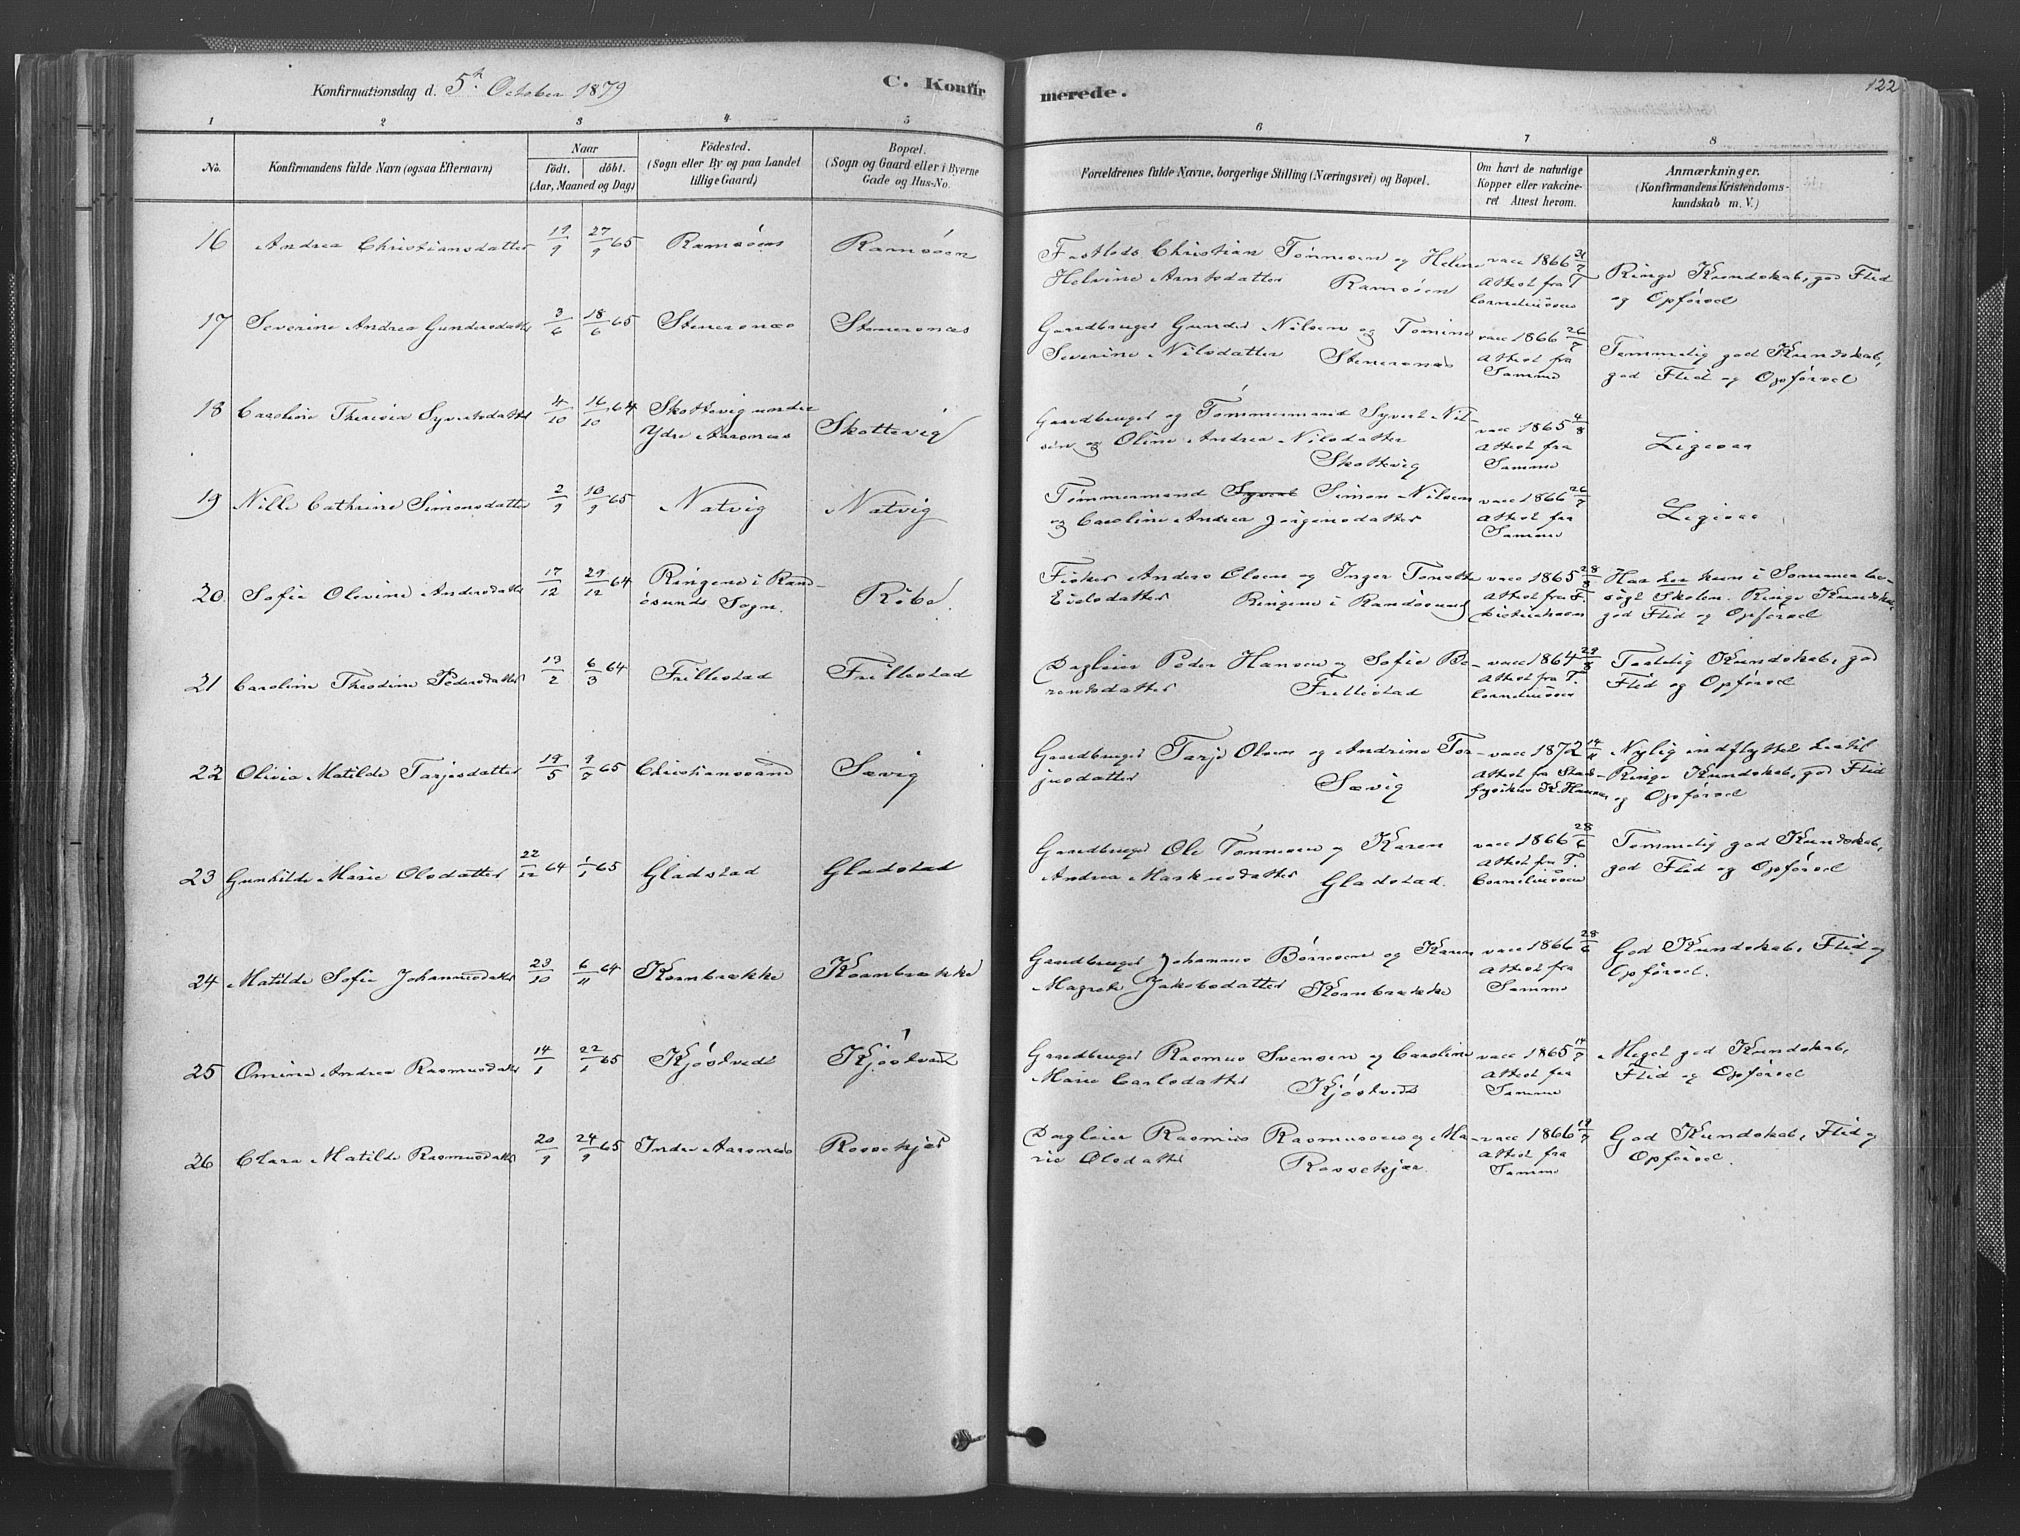 Konfirmationsdag d. 5te October 1879
C. Konfirmerede.
122
1 2 3 4 5 6 7 8
No. Konfirmandens fulde Navn (ogsaa Efternavn) Naar födt. döbt. (Aar, Maaned og Dag) Födested. (Sogn eller By og paa Landet tillige Gaard) Bopæl. (Sogn og Gaard eller i Byerne Gade og Hus-No. Forældrenes fulde Navne, borgerlige Stilling (Næringsvei) og Bopæl. Om havt de naturlige Kopper eller vakcineret Attest herom. Anmærkninger. (Konfirmandens Kristendomskundskab m. V.)
16 Andrea Christiansdatter 19/9 27/9 65 Ramsöen Ramsöen Christian Tönnesen og Helene vacc 1866 31/7
Helvine Arntsdatter Ramsöen Attest fra T. Corneliussen Ringe Kundskab, god Flid og Opförsel
17 Severine Andrea Gundersdatter 3/6 18/6 65 Stenersnæs Stenersnæs Gaardbruger Gunder Nilsen og Tomine vacc 1866 26/7
Severine Nilsdatter Stenersnæs Attest fra Samme Temmelig god Kundskab, god Flid og Opförsel
18 Caroline Theresia Syvertsdatter 4/10 16/10 64 Skottevig under Ydre Aarsnæs Skottevig Gaardbruger og Tömmermand Syvert Nilsen og Oline Andrea Nilsdatter Skottevig vacc 1865 4/8 Attest fra Samme Ligesaa
19 Nille Cathrine Simonsdatter 2/9 10/9 65 Natvig Natvig Tömmermand Syvert Simon Nilsen og Caroline Andrea Jörgensdatter vacc 1866 26/7 Attest fra Samme Ligesaa
20 Sofie Olevine Andersdatter 17/12 29/12 64 Ringene i Randösunds Sogn. Röbe. Fisker Anders Olsen og Inger Tonette Eivlsdatter Ringene i Randösund vacc 1865 28/8 Attest fra F. Har her kun i Sommer besögt Skolen. Ringe Kundskab, god Flid og Opförsel
21 Caroline Theodine Pedersdatter 13/2 6/3 64 Frillestad Frillestad Dagleier Peder Hansen og Sofie Berentsdatter Frillestad vacc 1864 29/8 Attest fra T. Corneliussen Taalelig Kundskab, god Flid og Opförsel
22 Olivia Matilde Tarjesdatter 19/5 9/7 65 Christianssand Sævig Gaardbruger Tarje Olsen og Andrine Torjusdatter Sævig vacc 1872 14/11 Attest fra Stadsfysikus K. Hansen Nylig indflyttet hertil Ringe Kundskab, god Flid og Opförsel
23 Gunhilde Marie Olsdatter 22/12 64 1/1 65 Gladstad Gladstad Gaardbruger Ole Tönnesen og Karen Andrea Markusdatter Gladstad. vacc 1866 28/6 Attest fra T. Corneliussen Temmelig god Kundskab, god Flid og Opförsel
24 Matilde Sofie Johannesdatter 23/10 6/11 64 Kornbrække Kornbrække Gaardbruger Johannes Börresen og Karen Magrete Jakobsdatter Kornbrække vacc 1866 28/6 Attest fra Samme God Kundskab, Flid og Opförsel.
25 Omine Andrea Rasmusdatter 14/1 22/1 65 Kjöstvedt Kjöstvedt Gaardbruger Rasmus Svensen og Caroline Marie Carlsdatter Kjöstvedt vacc 1865 14/7 Attest fra Samme Meget god Kundskab, Flid og Opförsel
26 Clara Matilde Rasmusdatter 20/9 24/9 65 Indre Aarsnæs Rossekjær Dagleier Rasmus Rasmussen og Marie Olsdatter Rossekjær vacc 1866 19/7 Attest fra Samme God Kundskab, Flid og Opförsel.